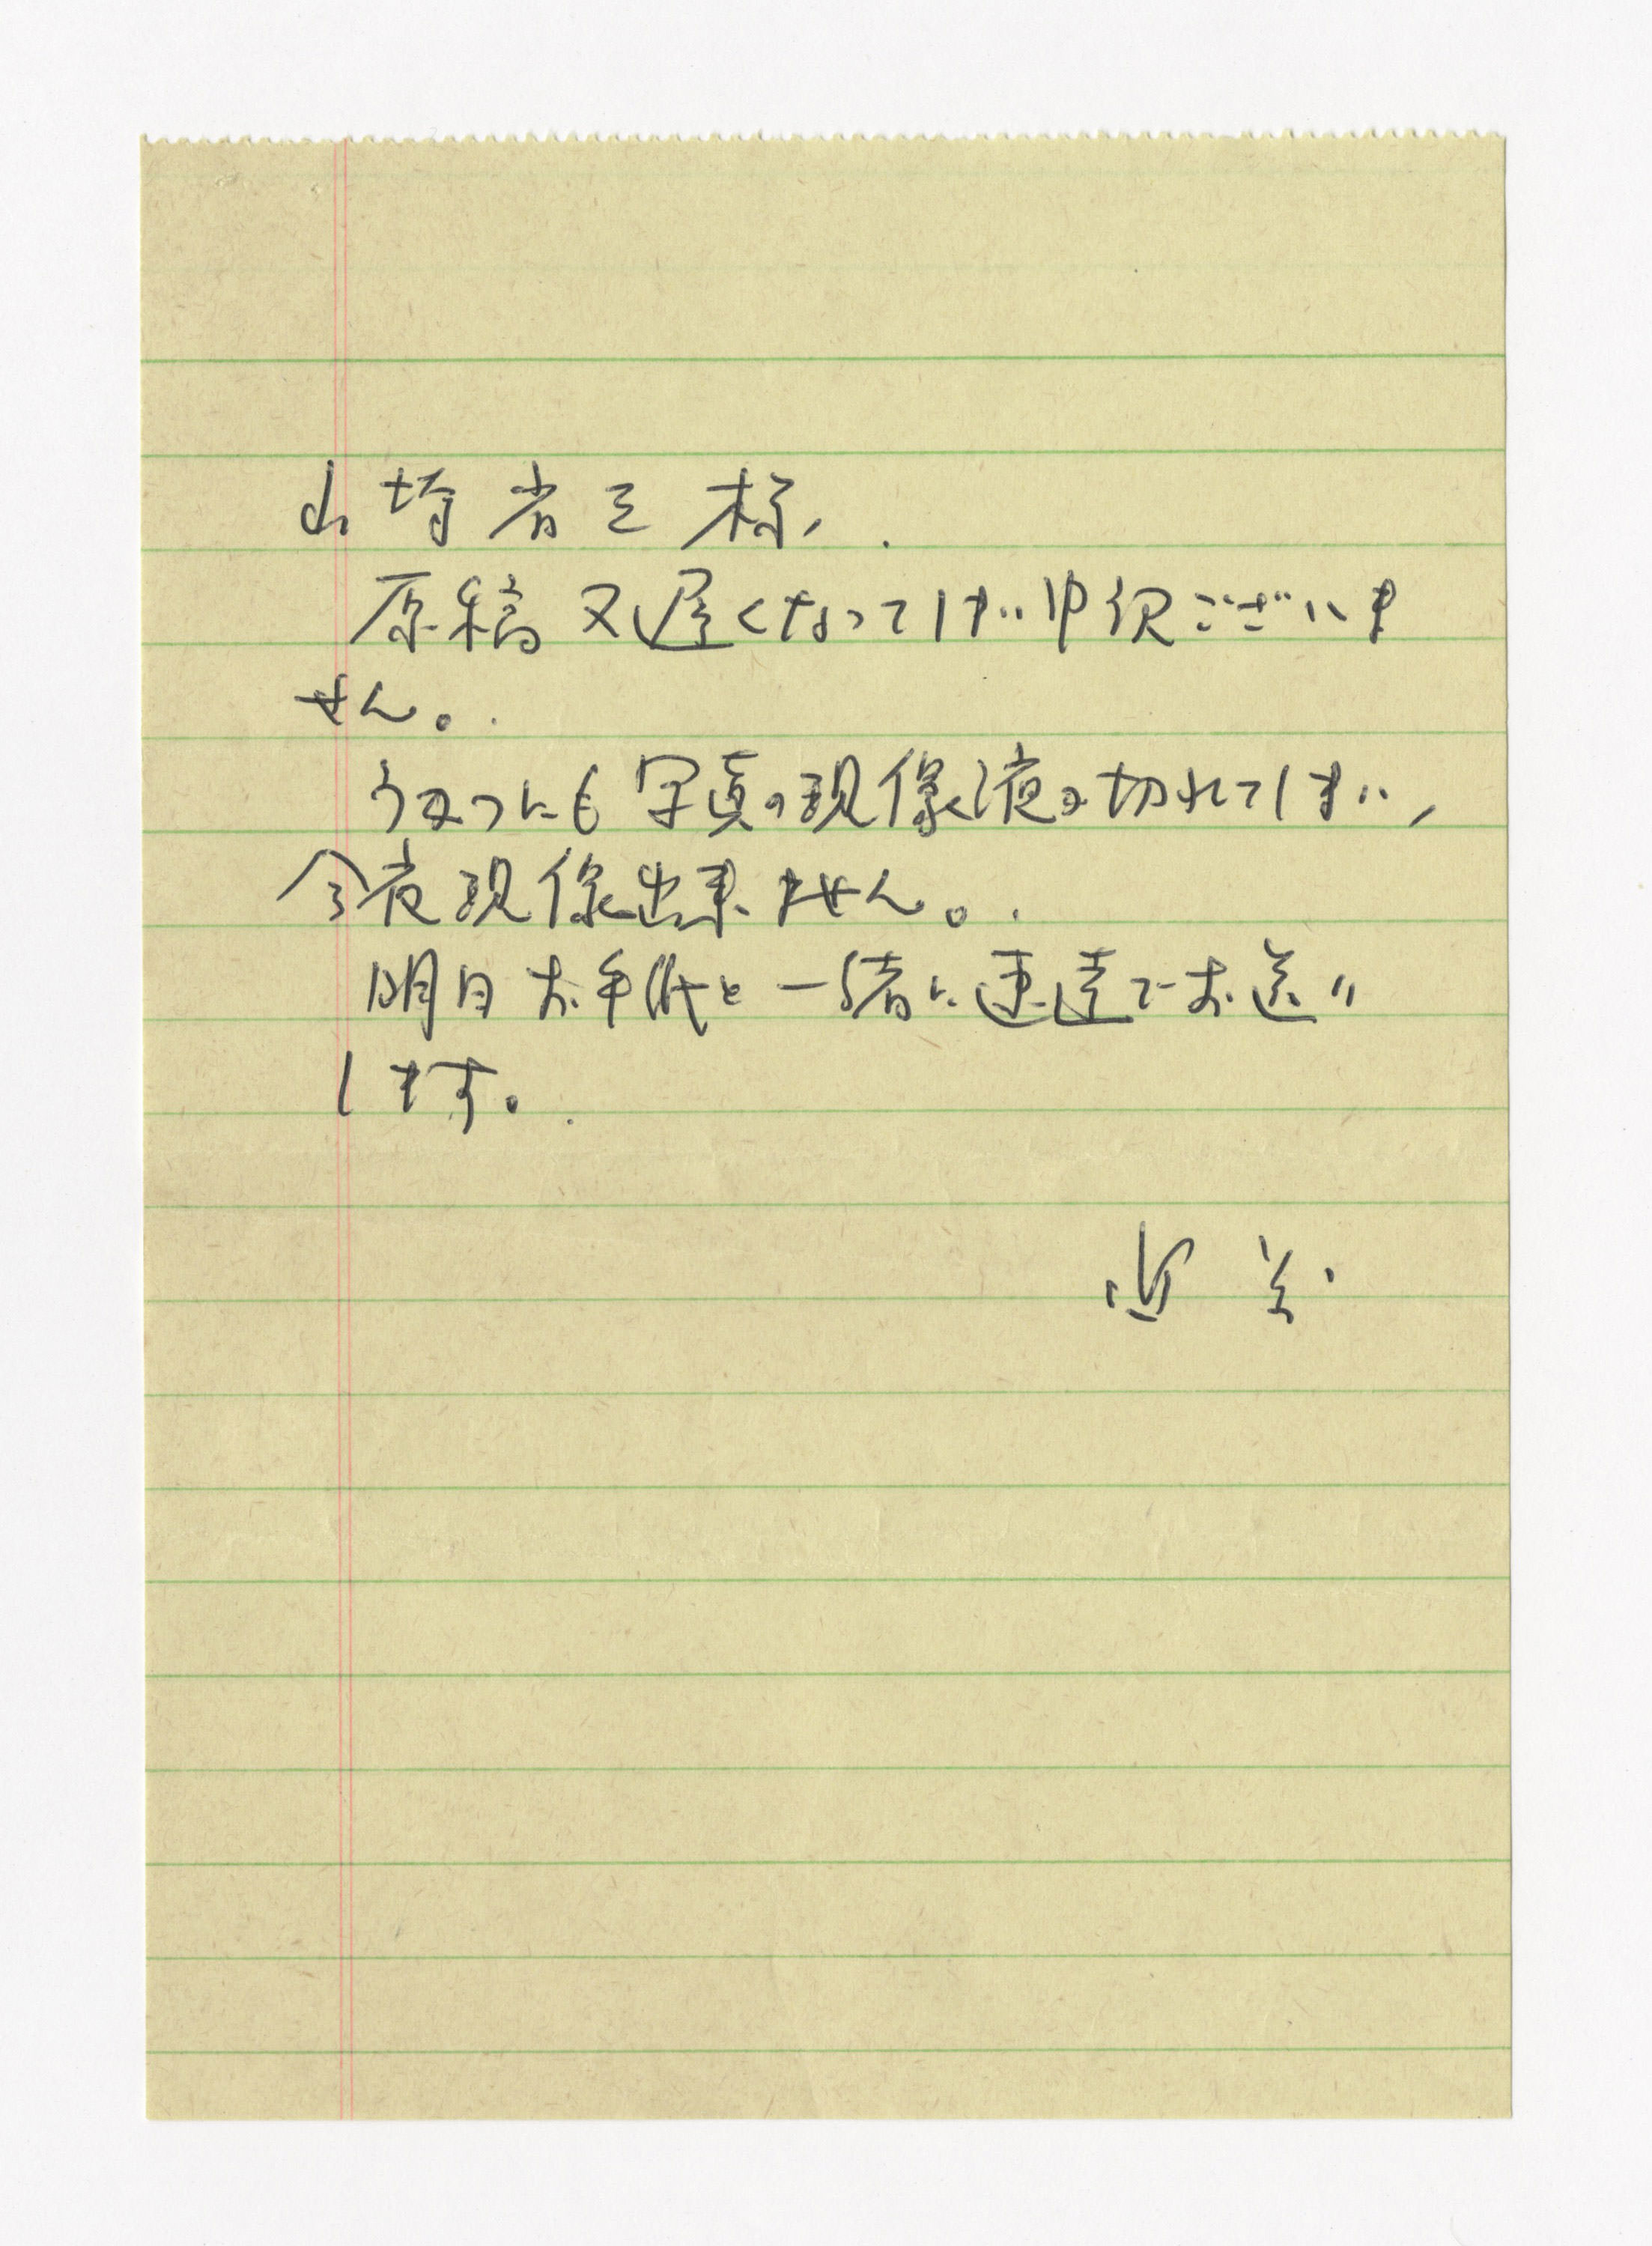 山崎省三様、
原稿又遅くなってしまい申訳ございま
せん。
うかつにも写真の現像液が切れてしまい、
今夜現像出来ません。
明日お手紙と一緒に速達でお送り
します。